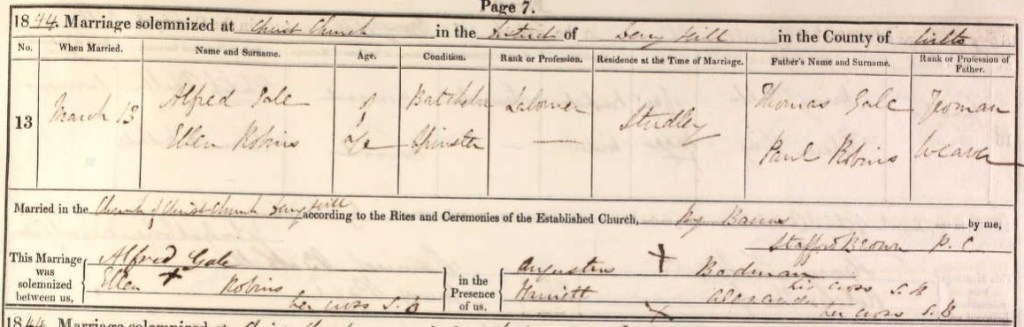 Page 7.
1844. Marriage solemnized at Christ Church in the District of Derry Hill in the County of Wilts
No. When Married. Name and Surname. Age. Condition. Rank or Profession. Residence at the Time of Marriage. Father's Name and Surname. Rank or Profession of Father.
13 March 13 Alfred Gale of Batchelor Laborer Studley Thomas Gale Yeoman
Ellen Robins age Spinster — Paul Robins Weaver
Married in the Church of Christ Church Derry Hill according to the Rites and Ceremonies of the Established Church, by Banns by me,
Stafford Brown P. C
This Marriage was solemnized between us,
Alfred Gale
Ellen + Robins
her cross S. B
in the Presence of us.
Augustus + Bodman
his cross S. B
Harriett + Alexander
her cross S. B
1844 Marriage solemnized at